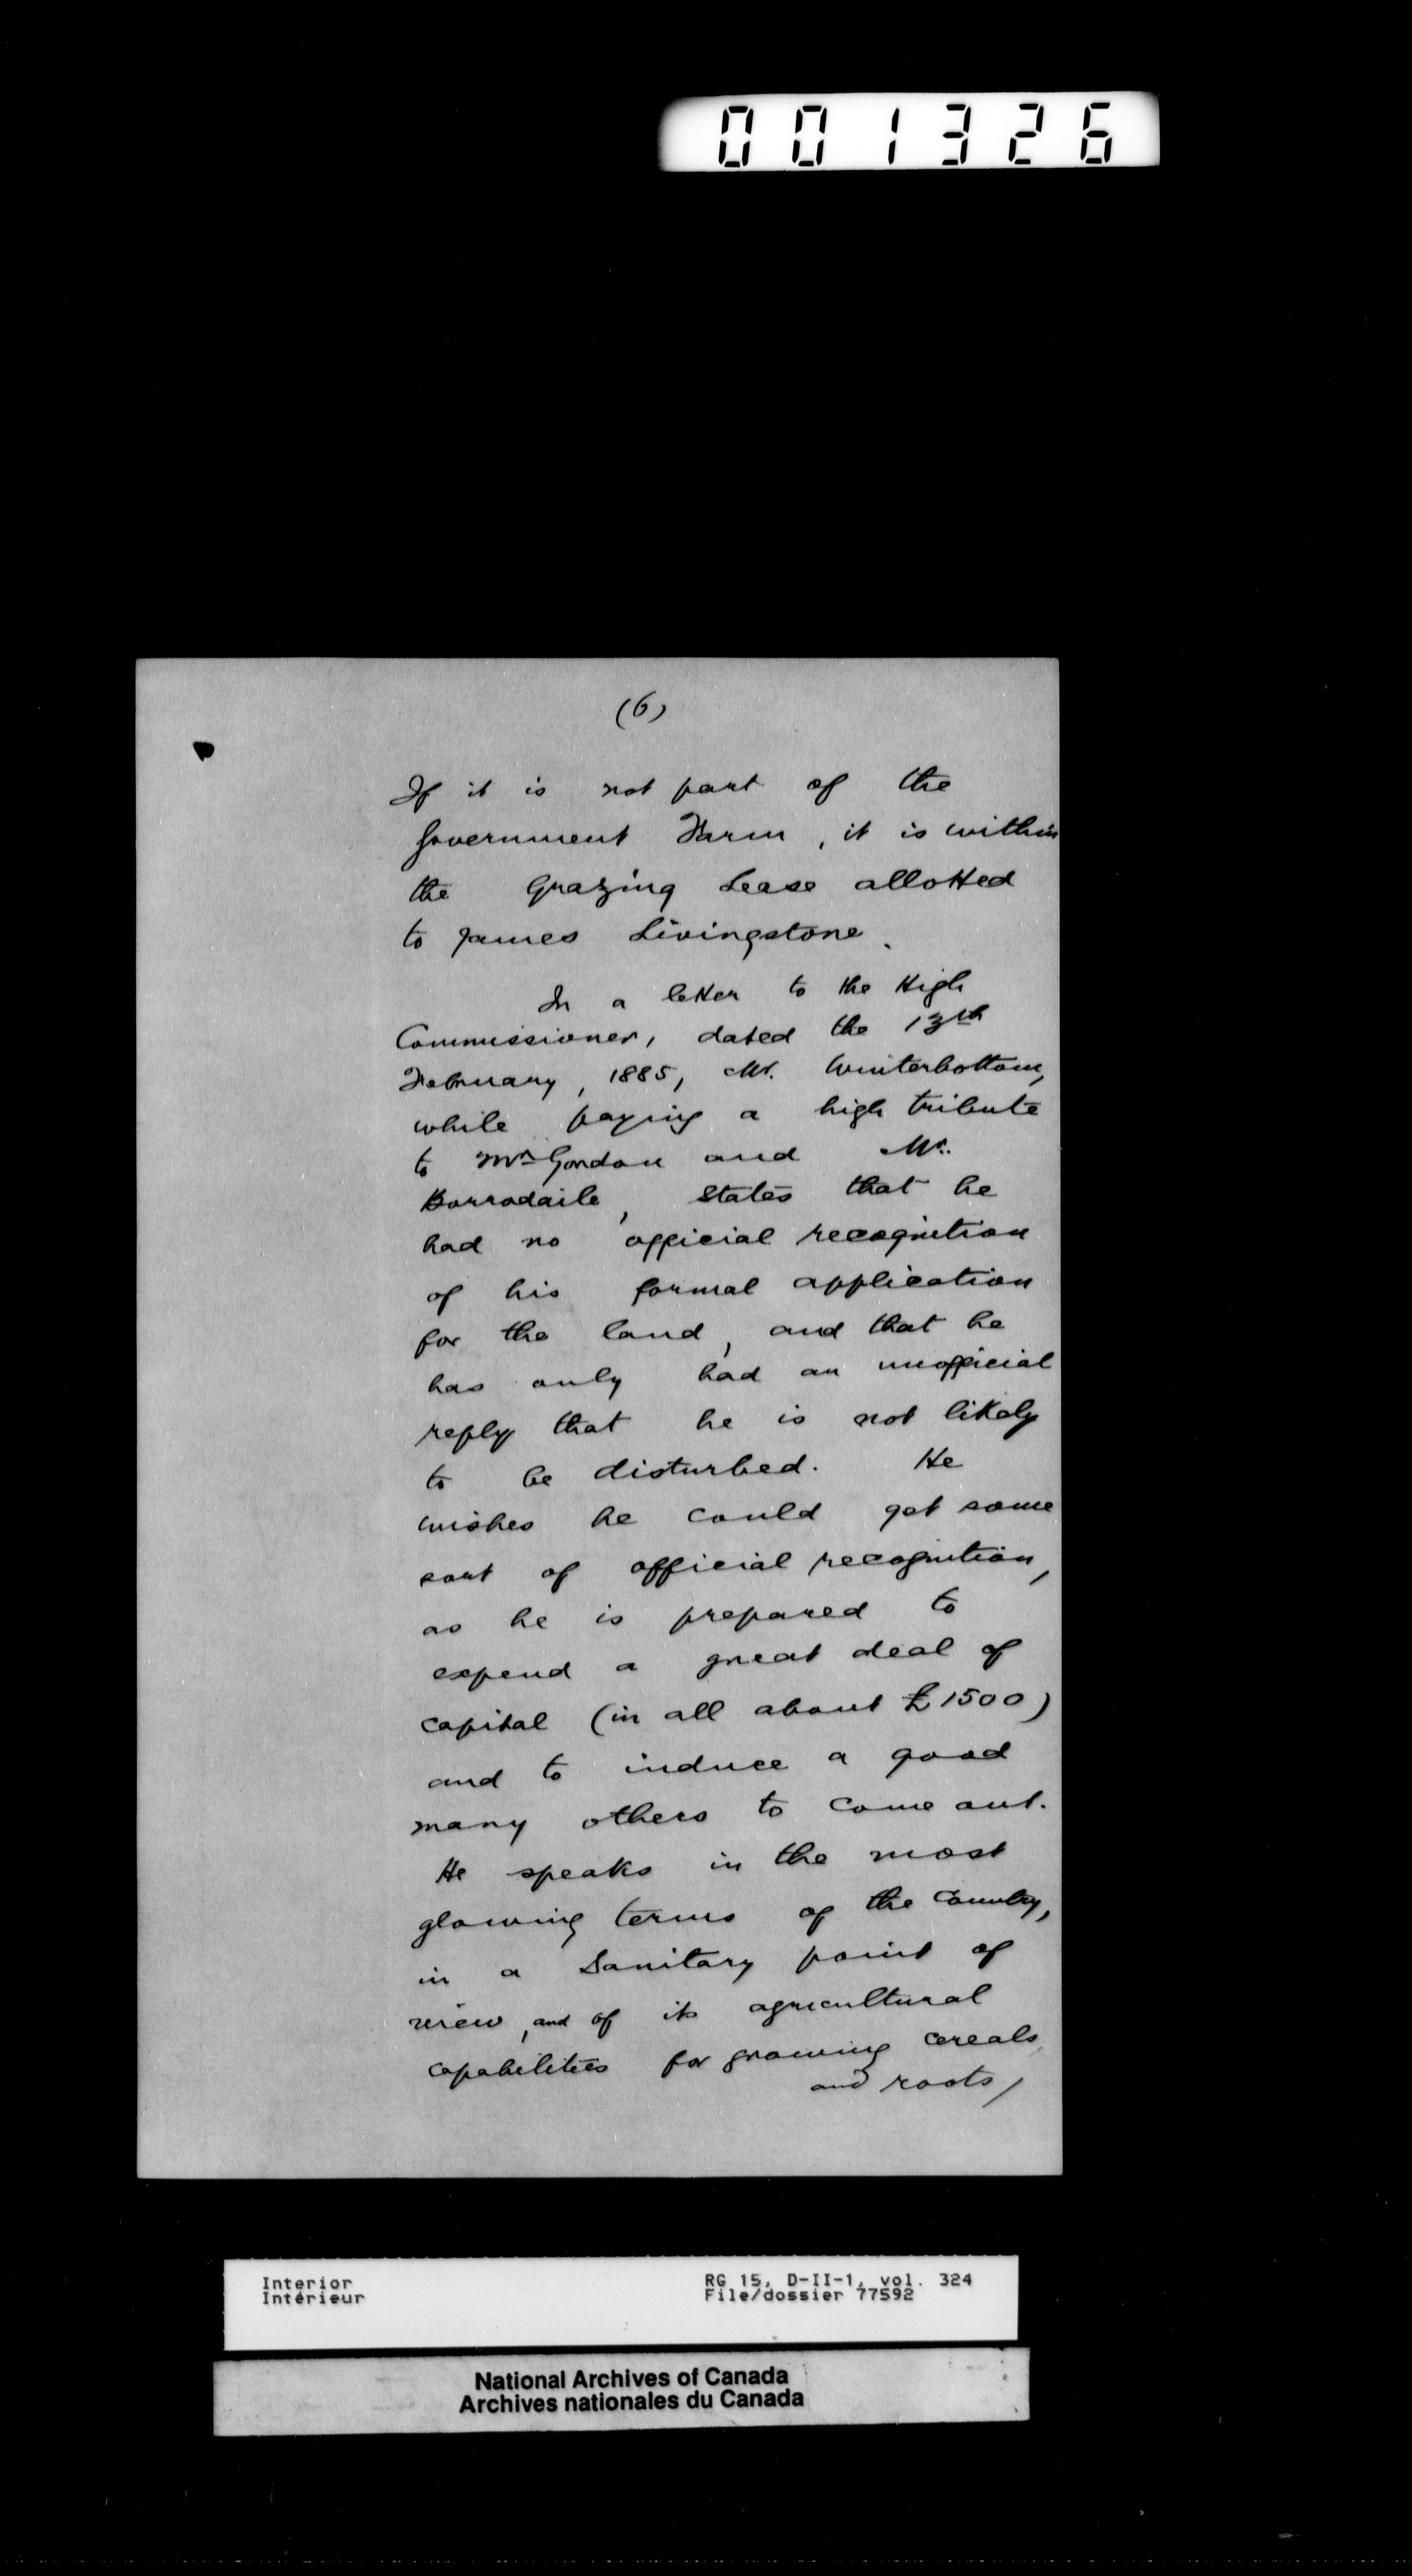 001326
(6)
If it is not part of the
Government Farm, it is within
the Grazing Lease allotted
to James Livingstone.
In a letter to the High
Commissioner, dated the 13th
February, 1885, Mr. Winterbottom,
while paying a high tribute
to Mr Gordon and Mr.
Borrodaile, states that he
had no official recognition
of his formal application
for the land, and that he
has only had an unofficial
reply that he is not likely
to be disturbed. He
wishes he could get some
sort of official recognition,
as he is prepared to
expend a great deal of
capital (in all about £1500)
and to induce a good
many others to come out.
He speaks in the most
glowing terms of the Country,
in a Sanitary point of
view, and of its agricultural
capabilities for growing cereals
and roots/
Interior RG 15, D-II-1, vol. 324
Intérieur File/dossier 77592
National Archives of Canada
Archives nationales du Canada